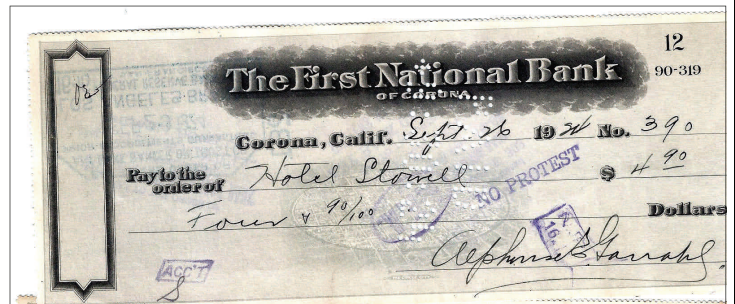 12
The First National Bank
90-319
OF CORONA
Corona, Calif. Sept. 26 1924 No. 390
Pay to the order of Hotel Stowell $ 4 90
NO PROTEST
Four & 90/100 Dollars
Alphonse
ACC'T